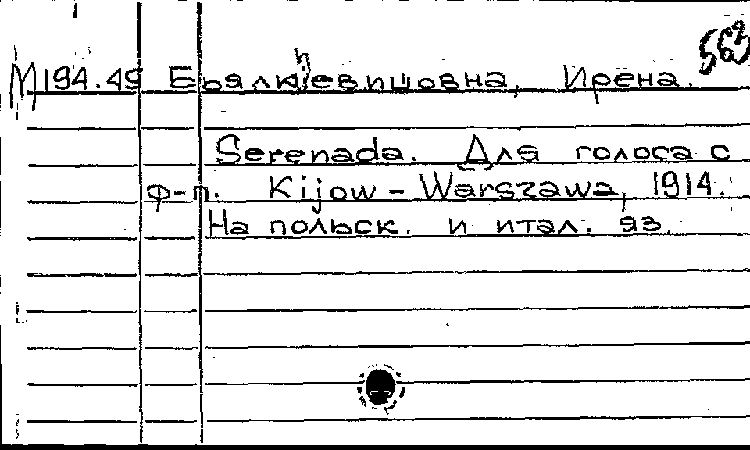 563
М194.49 Бялкевицовна, Ирена.
Serenada. Для голоса с
ф-п. Kijow – Warszawa, 1914.
На польск. и итал. яз.